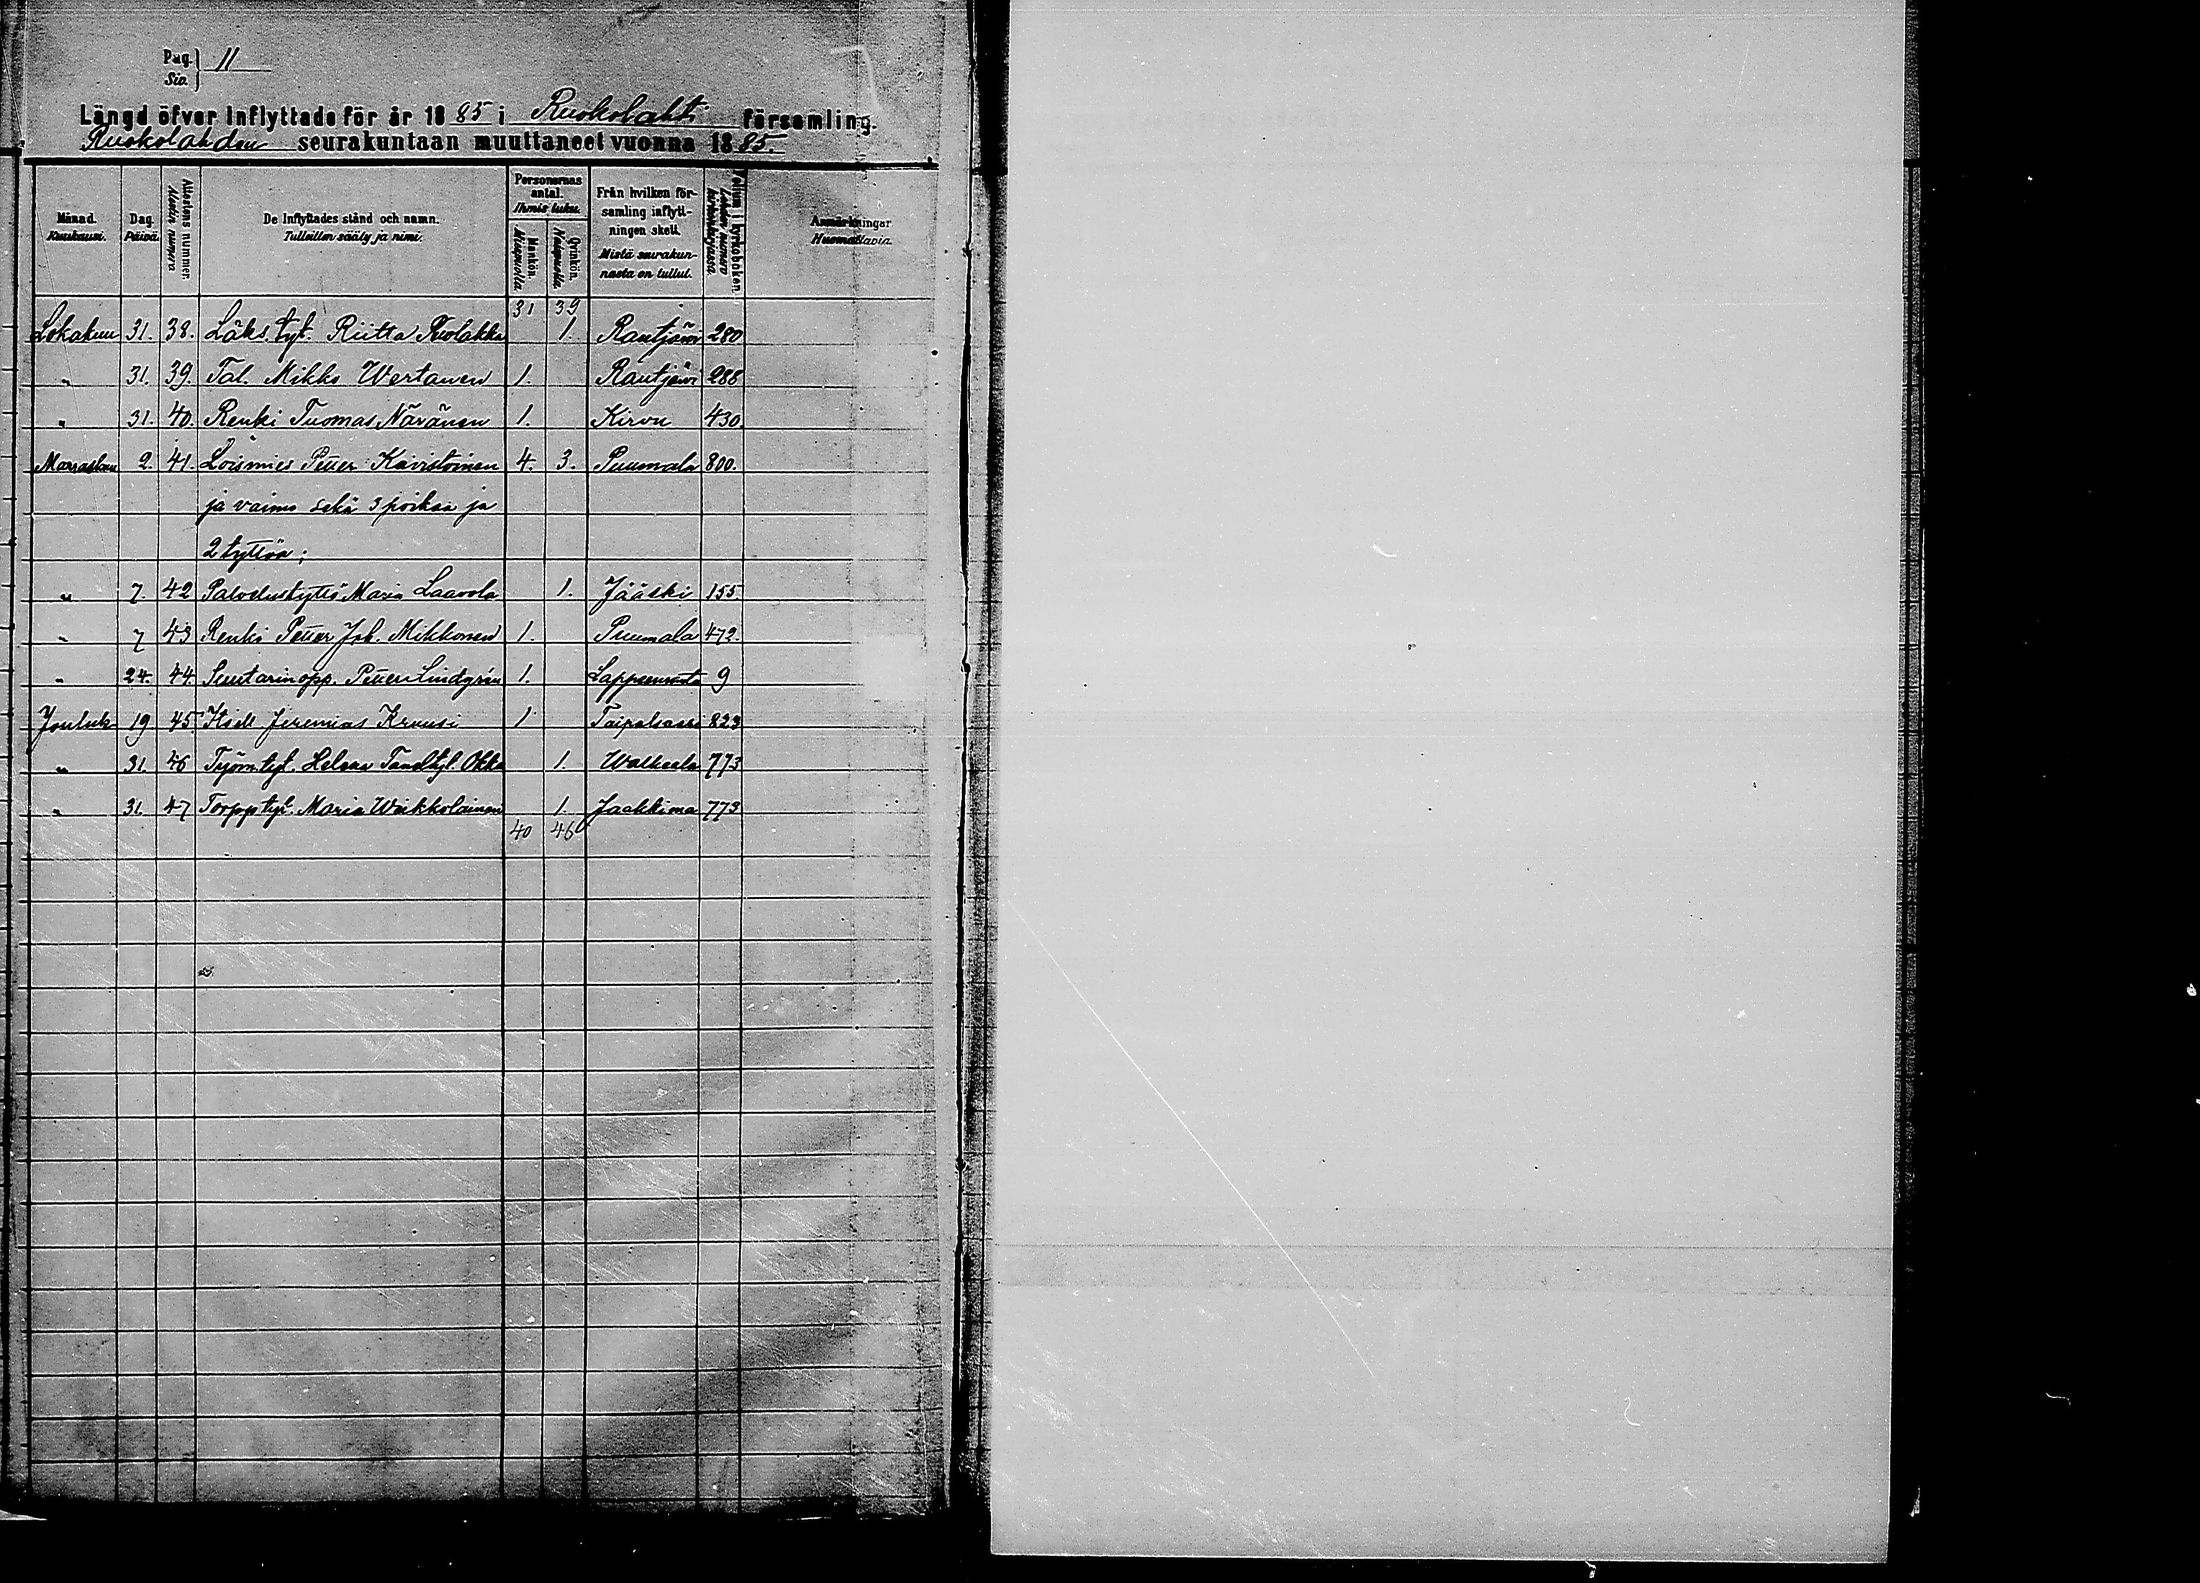 Pag. 11
Siv.
Längd öfver Inflyttade för år 1885 i Ruokolahti församling.
Ruokolahden seurakuntaan muuttaneet vuonna 1885.
Månad. Kuukausi. Dag. Päivä. Attestens nummer. Alestin numero De Inflyttades stånd och namn. Tulleitten sääty ja nimi. Personernas antal. Ihmis-luku. Mankön. Miespuolia. Qvinkön. Naispuolia. Från hvilken församling inflyttningen skett. Mistä seurakunnasta on tullut. Folium i kyrkoboken. Lehden numero kirkonkirjassa. Anmärkningar Huomattavia.
31 39
Lokakuu 31. 38. Läks. tyt. Riitta 1. Rautjärvi 280
" 31. 39. Tal. Mikko Wertanen 1. Rautjärvi 288
" 31. 40. Renki Tuomas Näränen 1. Kirvu 430.
Marraskuu 2. 41. Loismies Petter Kavistoinen 4. 3. Puumala 800.
ja vaimo sekä 3 poikaa ja
2 tyttöä;
" 7. 42 Palvelustyttö Maria Laavola 1. Jääski 155
" 7 43 Renki Petter Joh. Mikkonen 1. Puumala 472.
" 24. 44. Suutarinopp. Petter Lindgrén 1. Lappeenranta 9
Jouluk 19 45. Itsell. Jeremias Kruusi 1 Taipalsaari 823
" 31. 46 Työm. tyt. Helena Okko 1. Walkeala 773
" 31. 47 Torpp. tyt. Maria Waikkolainen 1. Jaakkima 773
40 46